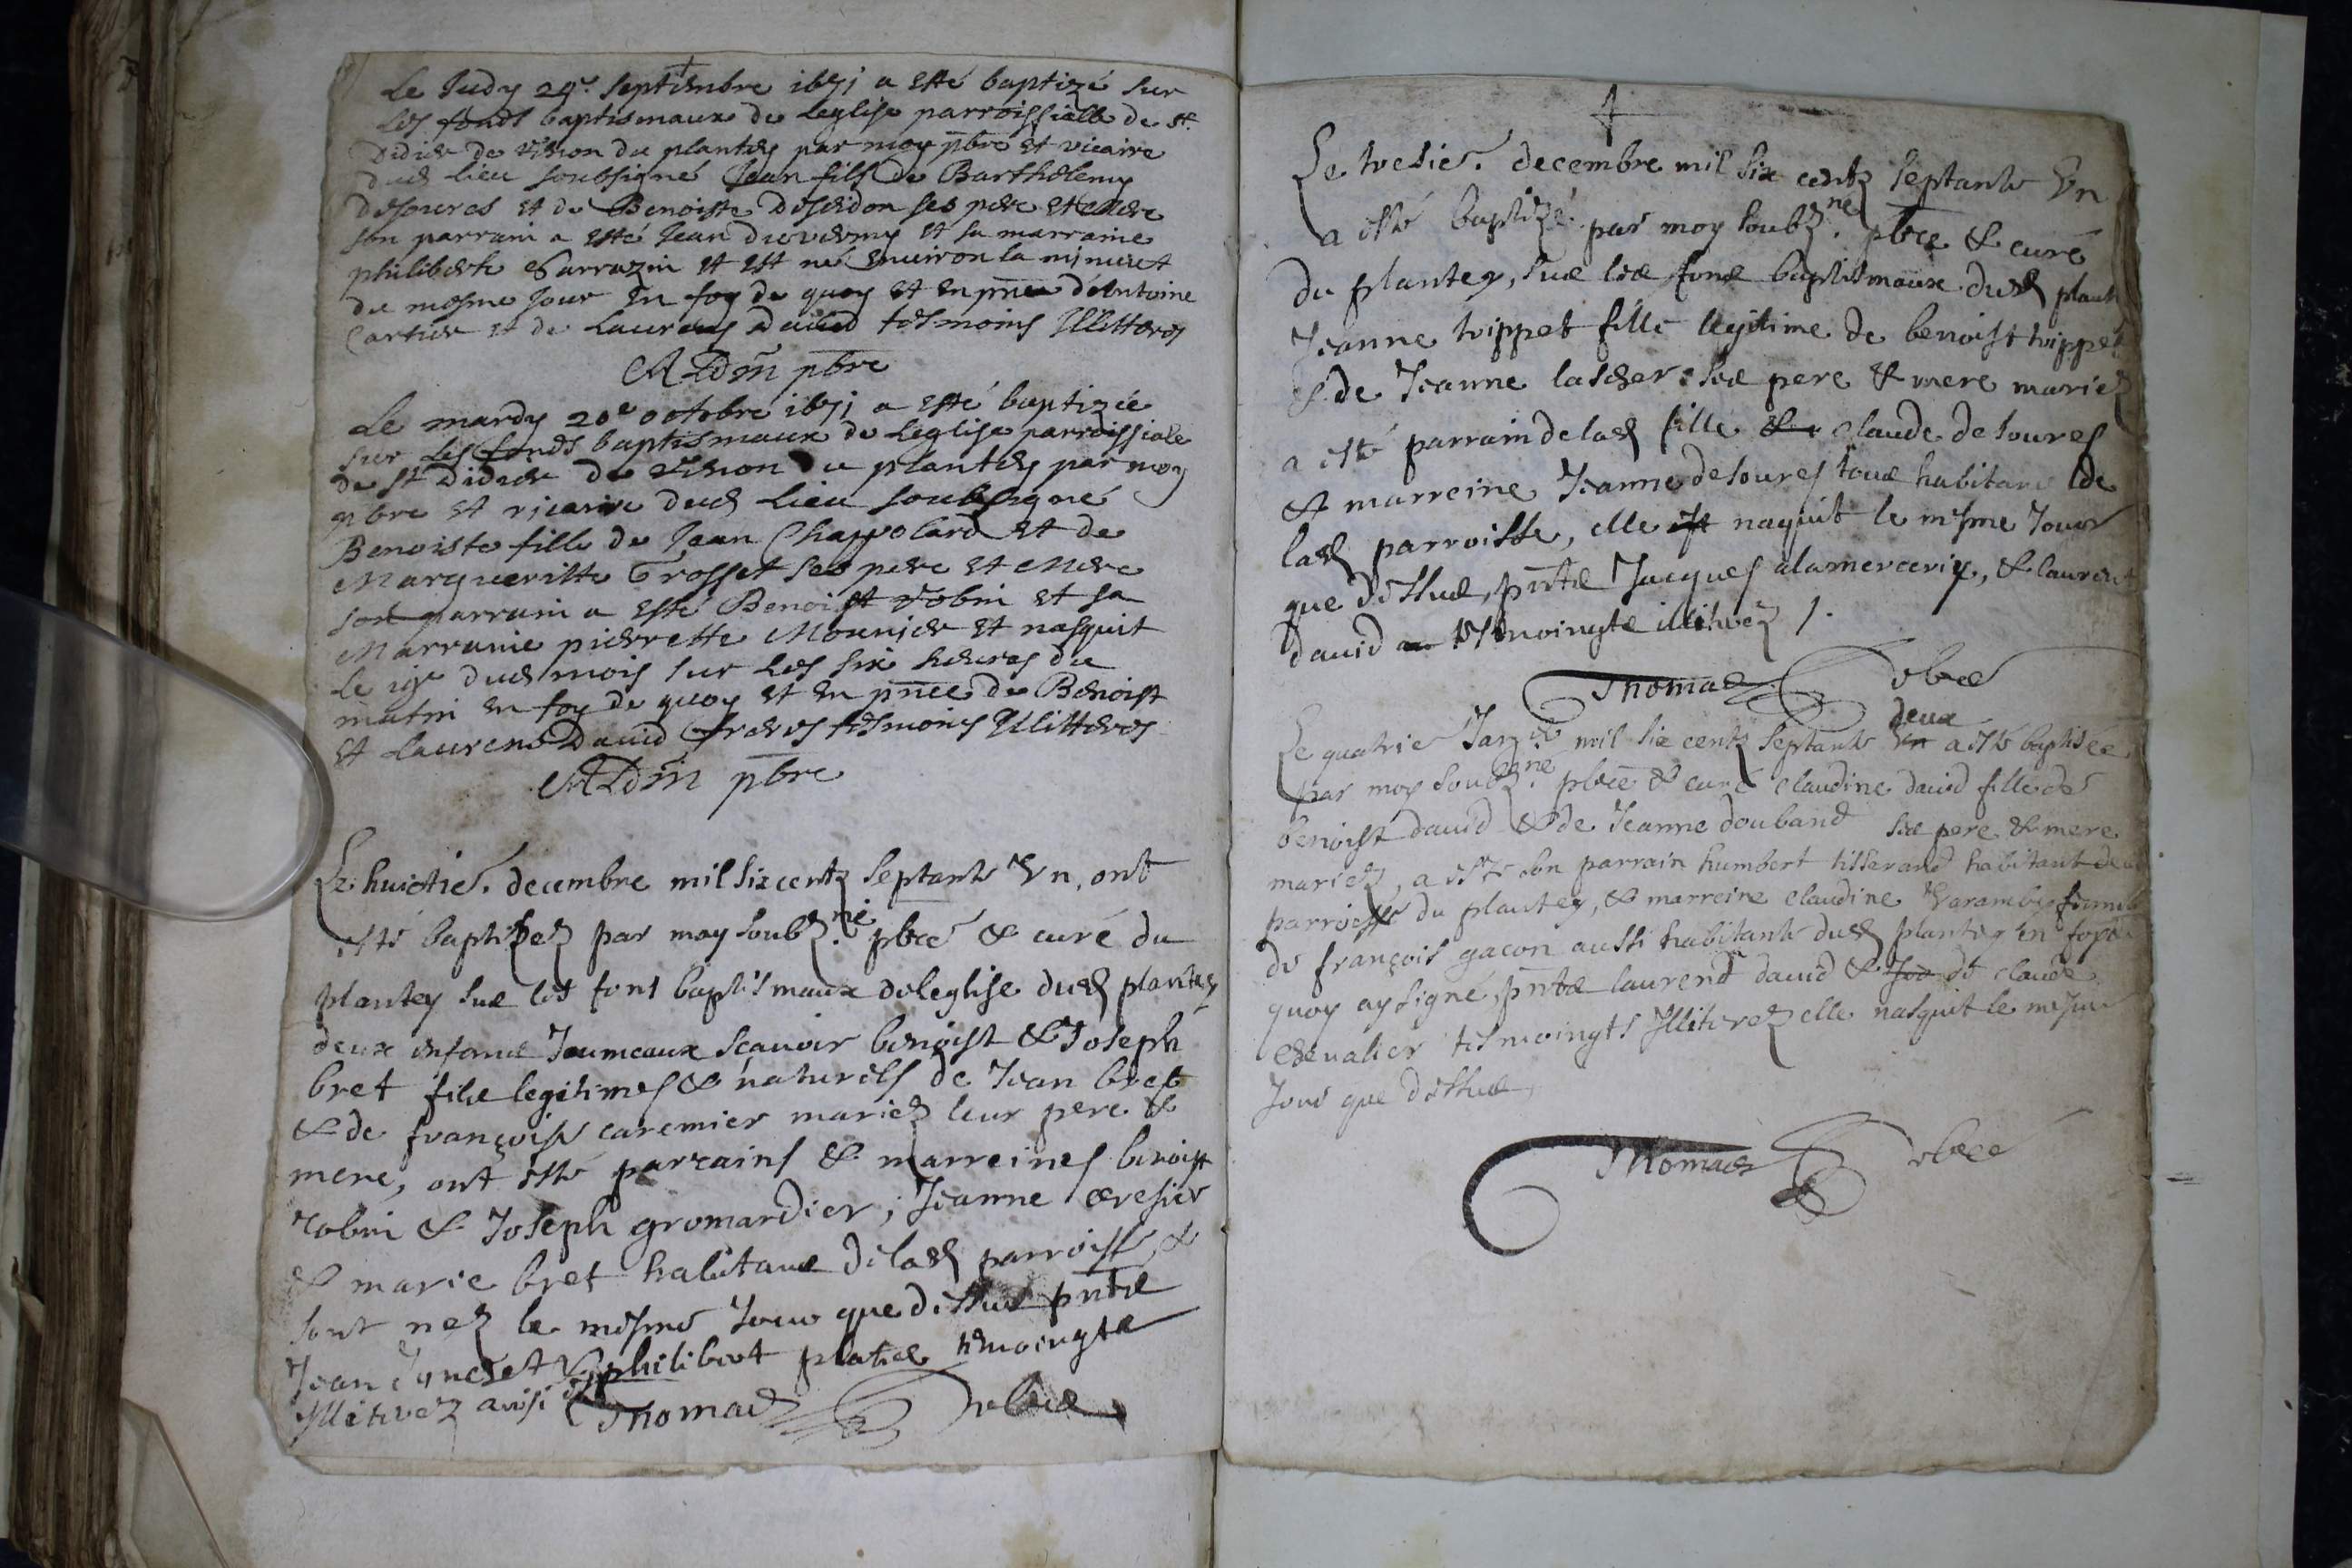 Le Judy 24e Septembre 1671 a esté baptizé sur
Les fonds baptismaux de Leglise parroissialle de St
Didier de du plantey par moy pbre et vicaire
dud lieu soubsigné Jean fils de Barthelemy
desoures et de Benoiste ses pere et mere
son parrain a esté Jean et sa marraine
philiberte Sarrazin et est né environ la minuict
du mesme jour En foy de quoy et en pnce d'Antoine
Cartier et de Laurens David tesmoins Illitteres
pbre
Le mardy 20e octobre 1671 a esté baptizée
sur Les fonds baptismaux de Leglise parroissiale
de St Didier de du plantey par moy
pbre et vicaire dud lieu soubsigné
Benoiste fille de Jean Chappolard et de
Margueritte Grosset ses pere et mere
son parrain a esté Benoist Robin et sa
Marraine pierrette Mounier et nasquit
le 19e dud mois sur les six heures du
matin en foy de quoy et en pnce de Benoist
et Laurens David freres tesmoins Illitteres
pbre
Le huictie. decembre mil six centz septante Un, ont
esté baptizez par moy soubz.né pbre & curé du
plantey sur les fonts baptismaux de leglise dud plantey
deux enfans Jumeaux scavoir benoist & Joseph
bret filz legitimes & naturels de Jean bret
& de françoise caremier mariez leur pere &
mere, ont esté parrains & marreines benoist
robin & Joseph gromardier, Jeanne
& marie bret habitans de lad parroisse, &
sont nez le mesme Jour que dessus pntz
Jean & philibert tesmoingtz
Illiterez Thomas
Le tresie. decembre mil six centz septante Un
a esté baptizé par moy soubz.né pbre & curé
du plantey, sur les fonts baptismaux dud plant
Jeanne trippet fille legitime de benoist trippet
& de Jeanne lascher ses pere & mere mariez
a esté parrain de lad fille & claude desoures
& marreine Jeanne desoures tous habitans de
lad parroisse, elle est naquit le mesme Jour
que dessus, pntz Jacques alamercerie, & laurent
david tesmoingtz illiterez /.
Thomas pbre
deux
Le quatrie Janvie mil six centz septante Un a esté baptisée
par moy soubz.né pbre & curé claudine david fille de
benoist david & de Jeanne douband ses pere & mere
mariez, a esté son parrain humbert tisserand habitant de
parroisse du plantey, & marreine claudine femme
de françois gacon aussi habitante dud plantey En foy de
quoy ay signé, pntz laurend david & de claude
chevalier tesmoingts Illiterez elle nasquit le mesme
Jour que dessus
Thomas pbre